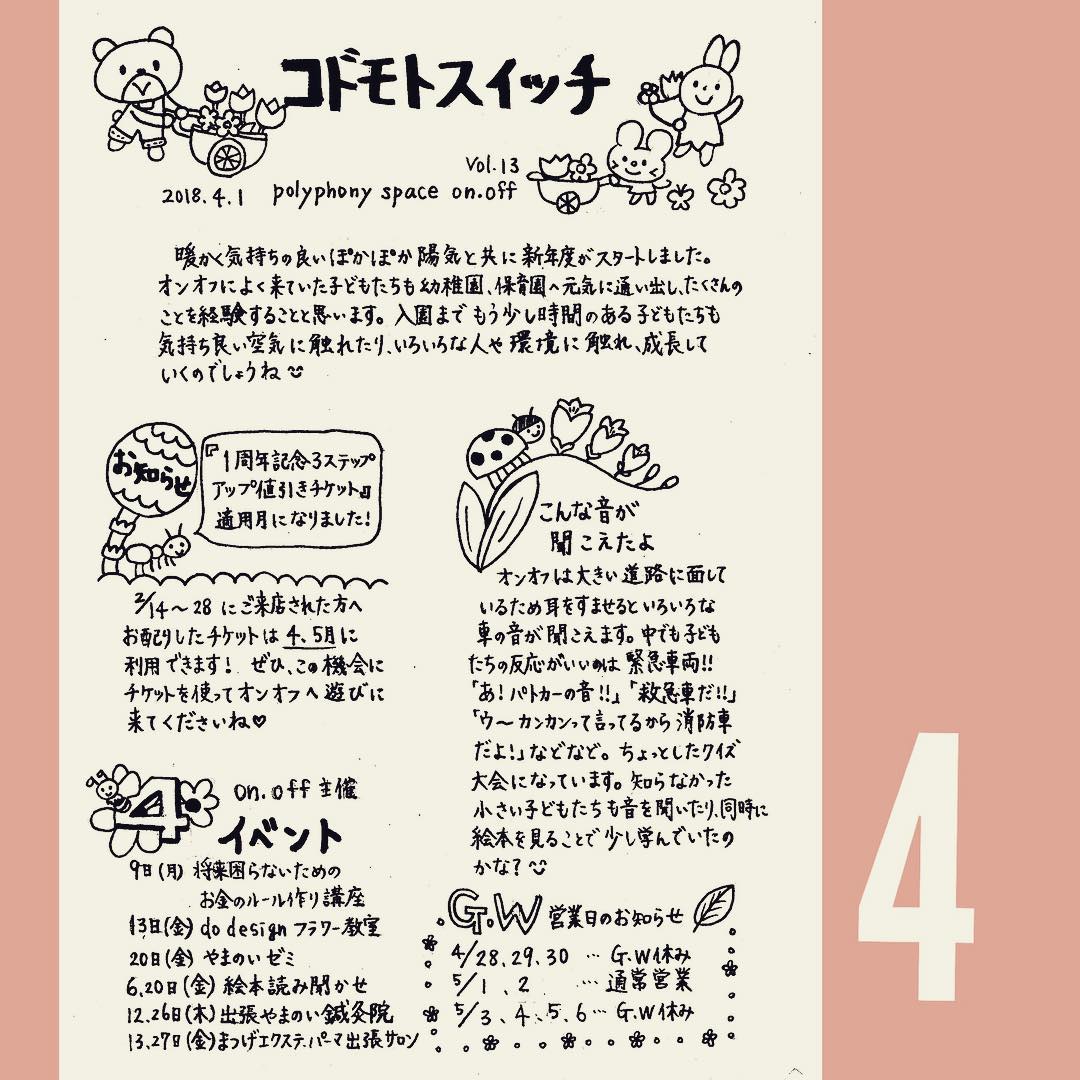 コドモトスイッチ
Vol.13
2018.4.1 polyphony space on.off
暖かく気持ちの良いぽかぽか陽気と共に新年度がスタートしました。
オンオフによく来ていた子どもたちも幼稚園、保育園へ元気に通い出し、たくさんの
ことを経験することと思います。入園までもう少し時間のある子どもたちも
気持ち良い空気に触れたり、いろいろな人や環境に触れ、成長して
いくのでしょうね
お知らせ
『1周年記念3ステップ
アップ値引きチケット』
適用月になりました!
2/14〜28 にご来店された方へ
お配りしたチケットは 4、5月に
利用できます! ぜひ、この機会に
チケットを使ってオンオフへ遊びに
来てくださいね♡
こんな音が
聞こえたよ
オンオフは大きい道路に面して
いるため耳をすませるといろいろな
車の音が聞こえます。中でも子ども
たちの反応がいいのは緊急車両!!
「あ!パトカーの音!!」「救急車だ!!」
「ウ〜カンカンって言ってるから消防車
だよ!」などなど。ちょっとしたクイズ
大会になっています。知らなかった
小さい子どもたちも音を聞いたり、同時に
絵本を見ることで少し学んでいたの
かな?
4 on.off 主催
イベント
9日(月) 将来困らないための
お金のルール作り講座
13日(金) do design フラワー教室
20日(金) やまのいゼミ
6.20日(金) 絵本読み聞かせ
12.26日(木) 出張やまのい鍼灸院
13.27日(金) まつげエクステ.パーマ出張サロン
G.W 営業日のお知らせ
4/28.29.30 … G.W休み
5/1、2 … 通常営業
5/3、4、5、6… G.W休み
4